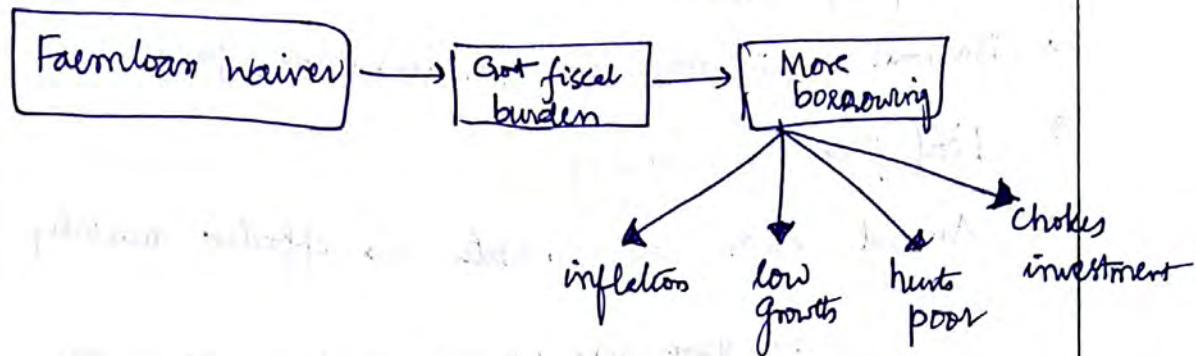 Farmloan waiver
Govt fiscal
burden
More
borrowing
inflation
low
growth
hurts
poor
Chokes
investment